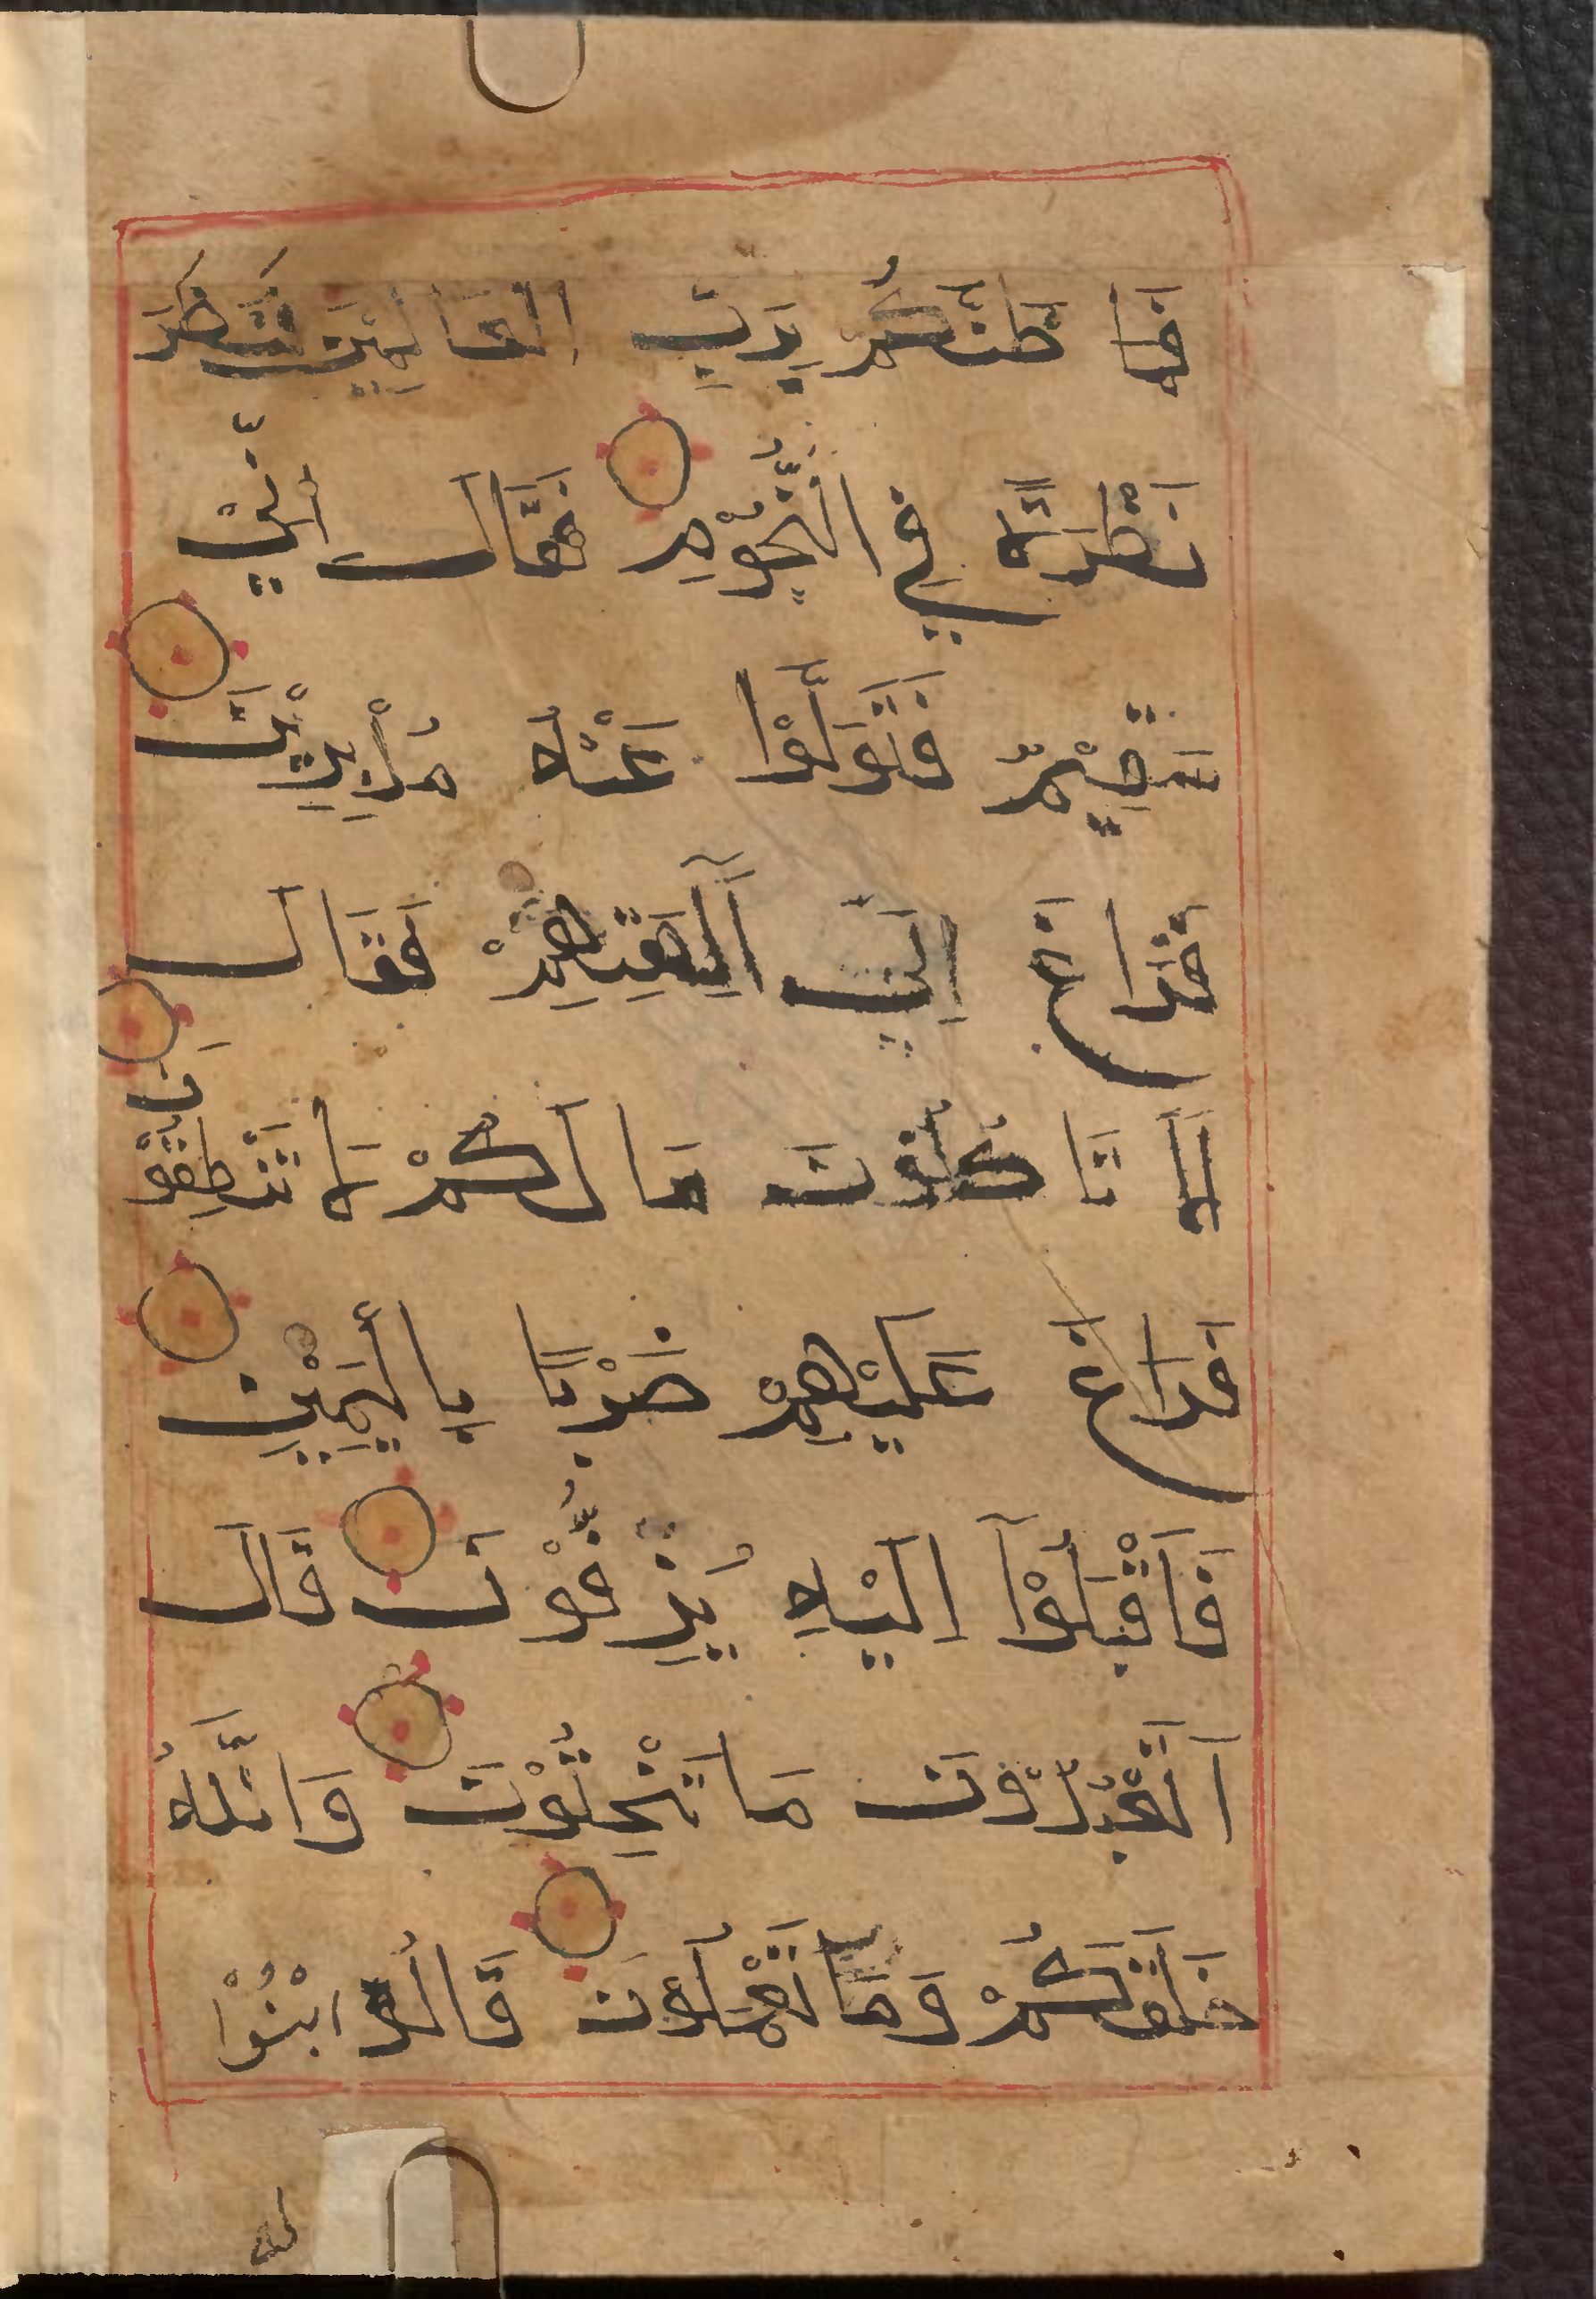 فَمَا ظَنُّكُمْ بِرَبِّ الْعَالَمِيْنَ فَنَظَرَ
نَظْرَةً فِي النُّجُوْمِ فَقَالَ اِنِّيْ
سَقِيْمٌ فَتَوَلَّوْا عَنْهُ مُدْبِرِيْنَ
فَرَاغَ اِلَىٓ اٰلِهَتِهِمْ فَقَالَ
اَلَا تَاكُلُوْنَ مَا لَكُمْ لَا تَنْطِقُوْنَ
فَرَاغَ عَلَيْهِمْ ضَرْبًا بِالْيَمِيْنِ
فَاَقْبَلُوْٓا اِلَيْهِ يُزِفُّوْنَ قَالَ
اَتَعْبُدُوْنَ مَا تَنْحِتُوْنَ وَاللّٰهُ
خَلَقَكُمْ وَمَا تَعْمَلُوْنَ قَالُوا ابْنُوْا